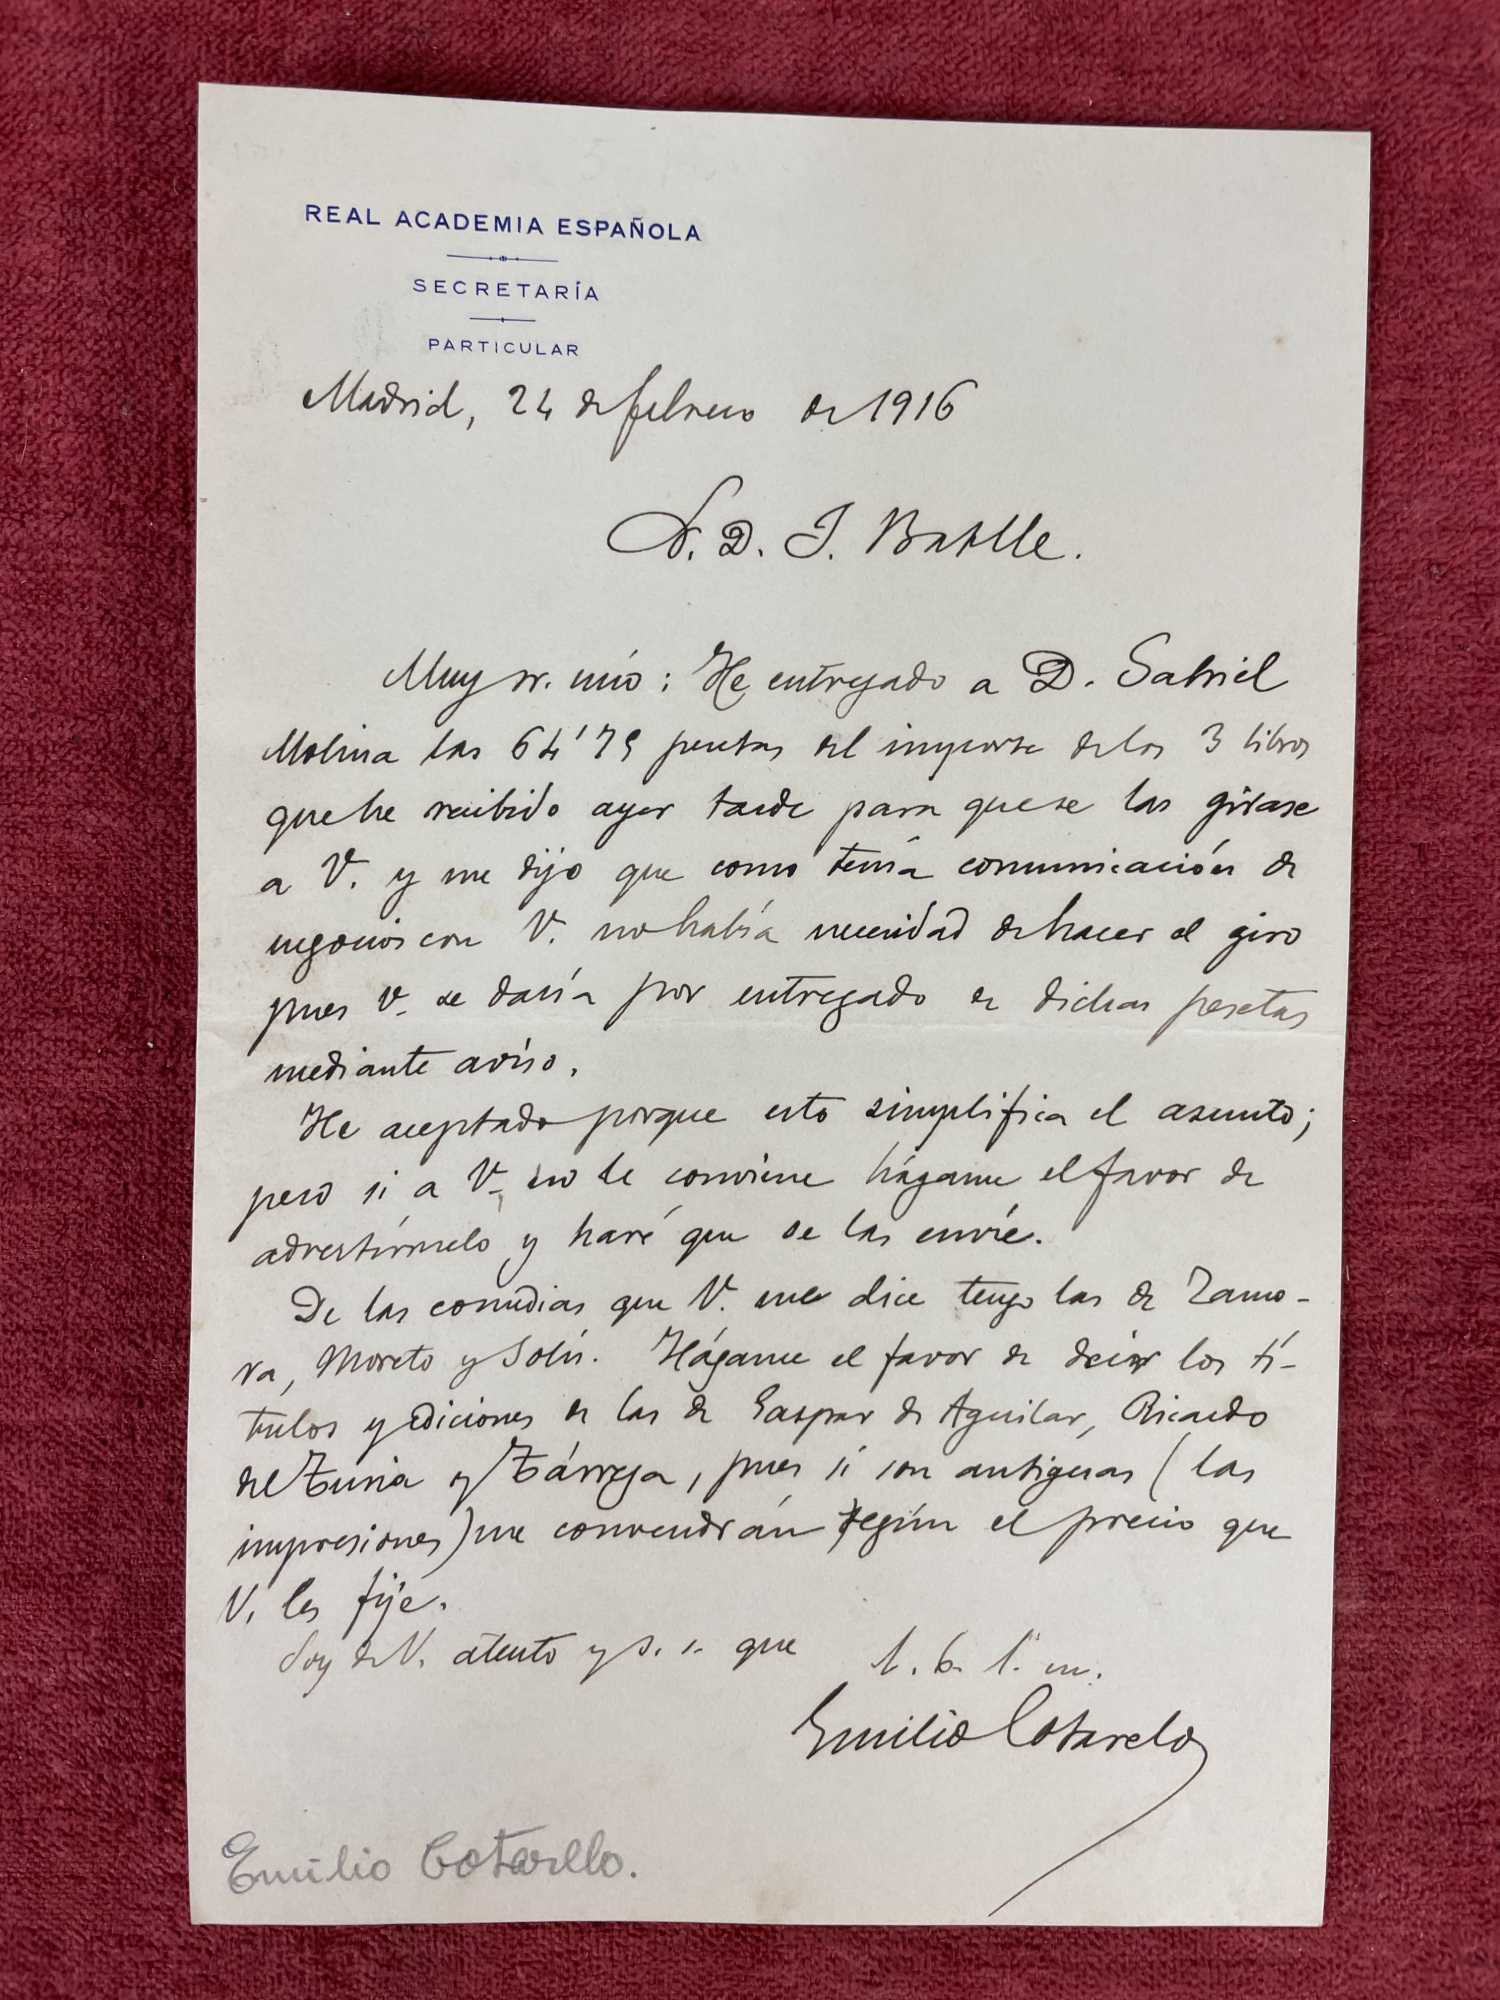 REAL ACADEMIA ESPAÑOLA
SECRETARÍA
PARTICULAR
Madrid, 24 de febrero de 1916
S. D. J. Batlle.
Muy sr. mío: He entregado a D. Gabriel
Molina las 64'75 pesetas del importe de los 3 libros
que he recibido ayer tarde para que se las girase
a V. y me dijo que como tenía comunicación de
negocios con V. no había necesidad de hacer el giro
pues V. se daría por entregado de dichas pesetas
mediante aviso.
He aceptado porque esto simplifica el asunto;
pero si a V. no le conviene hágame el favor de
advertírmelo y haré que se las envíe.
De las comedias que V. me dice tengo las de Zamo-
ra, Moreto y Solís. Hágame el favor de decir los tí-
tulos y ediciones de las de Gaspar de Aguilar, Ricardo
del Turia y Tárrega, pues si son antiguas (las
impresiones) me convendrán según el precio que
V. les fije.
Soy de V. atento y s. s. que
l. b. l. m.
Emilio Cotarelo
Emilio Cotarello.